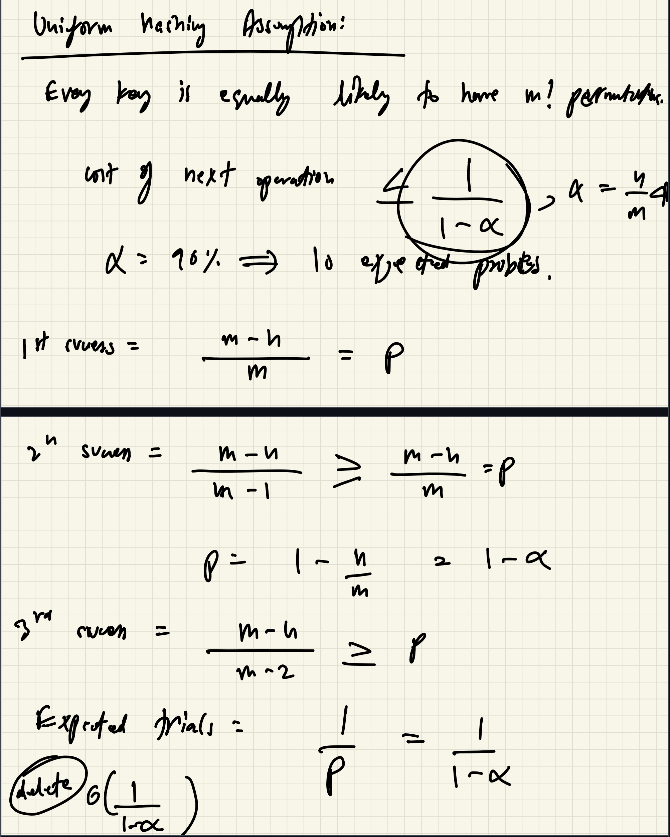 Uniform Hashing Assumption:
Every key is equally likely to have m! permutations.
cost of next operation ≤ 1/(1-α), α = n/m <
α = 90% ⟹ 10 expected probes.
1st success = (m-n)/m = p
2n success = (m-n)/(m-1) ≥ (m-n)/m = p
p = 1 - n/m = 1-α
3rd success = (m-n)/(m-2) ≥ p
Expected trials = 1/p = 1/(1-α)
delete Θ(1/(1-α))